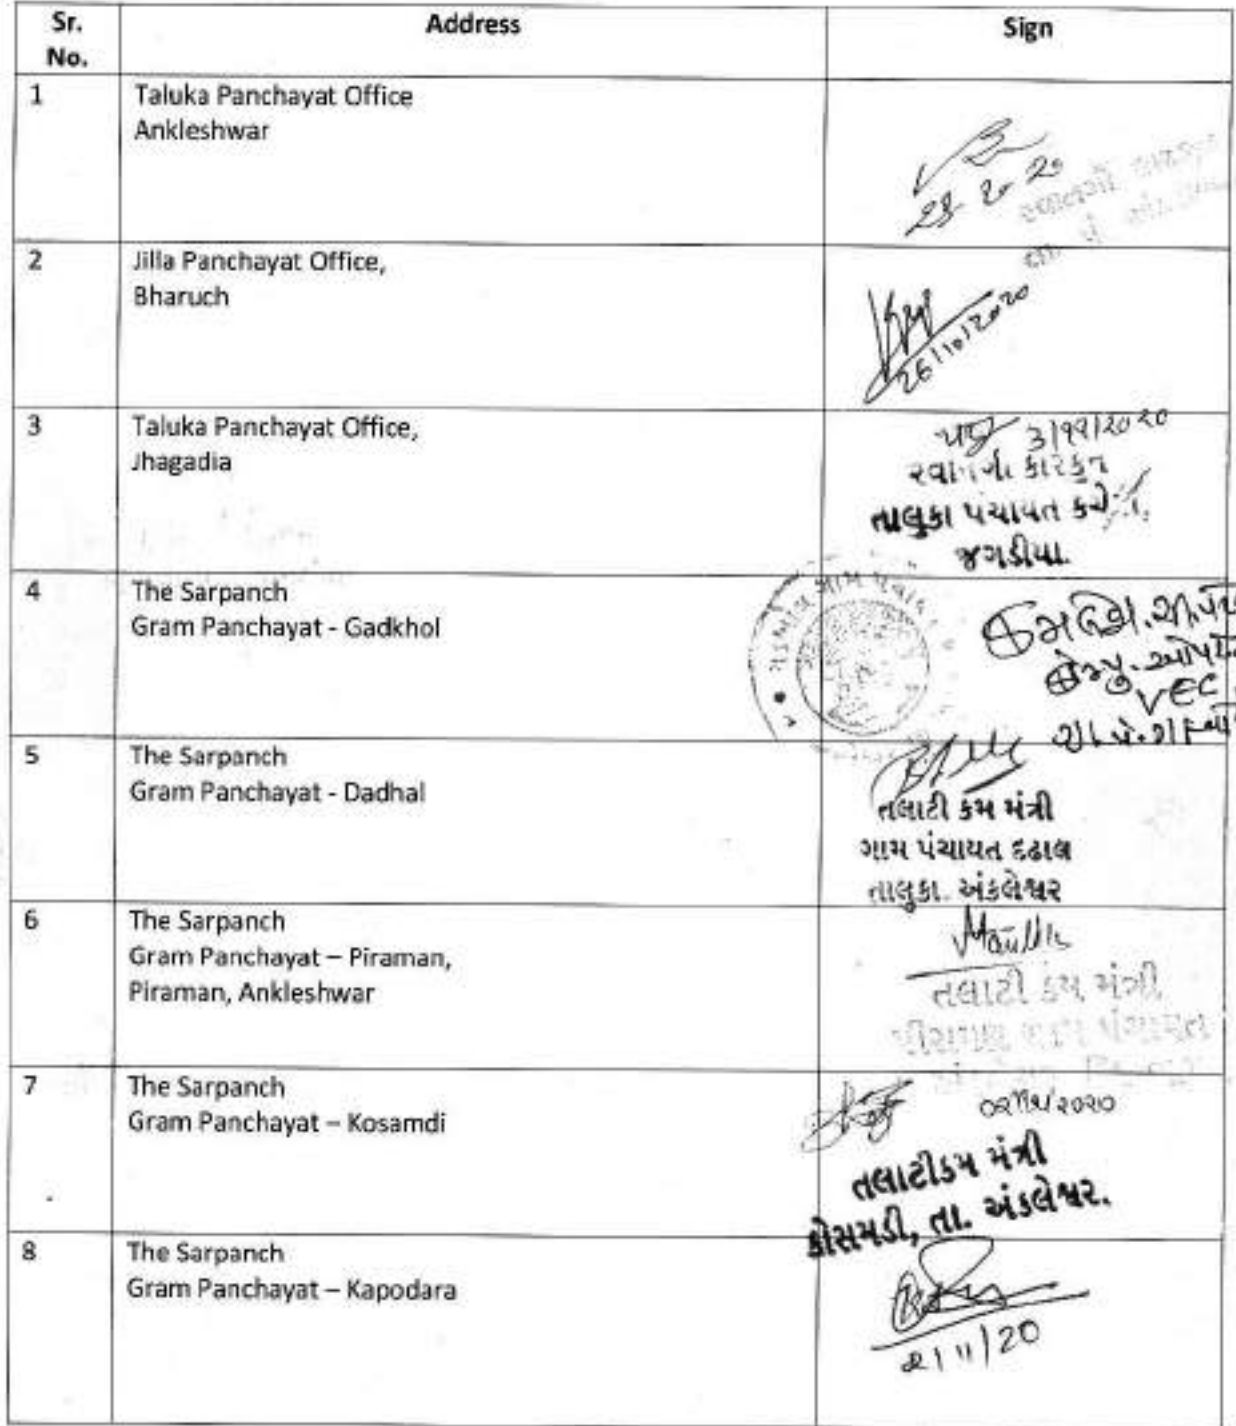 Sr. No. Address Sign
1 Taluka Panchayat Office
Ankleshwar
2 Jilla Panchayat Office,
Bharuch
26/10/2020
3 Taluka Panchayat Office,
Jhagadia
3/૧૧/2020
રવાનગી કારકુન
તાલુકા પંચાયત
જગડીયા.
4 The Sarpanch
Gram Panchayat - Gadkhol
VEC
5 The Sarpanch
Gram Panchayat - Dadhal
તલાટી કમ મંત્રી
ગામ પંચાયત દઢાલ
તાલુકા. અંકલેશ્વર
6 The Sarpanch
Gram Panchayat – Piraman,
Piraman, Ankleshwar
તલાટી કમ મંત્રી
7 The Sarpanch
Gram Panchayat – Kosamdi
તલાટીકમ મંત્રી
કોસમડી, તા. અંકલેશ્વર.
8 The Sarpanch
Gram Panchayat – Kapodara
૨/11/20